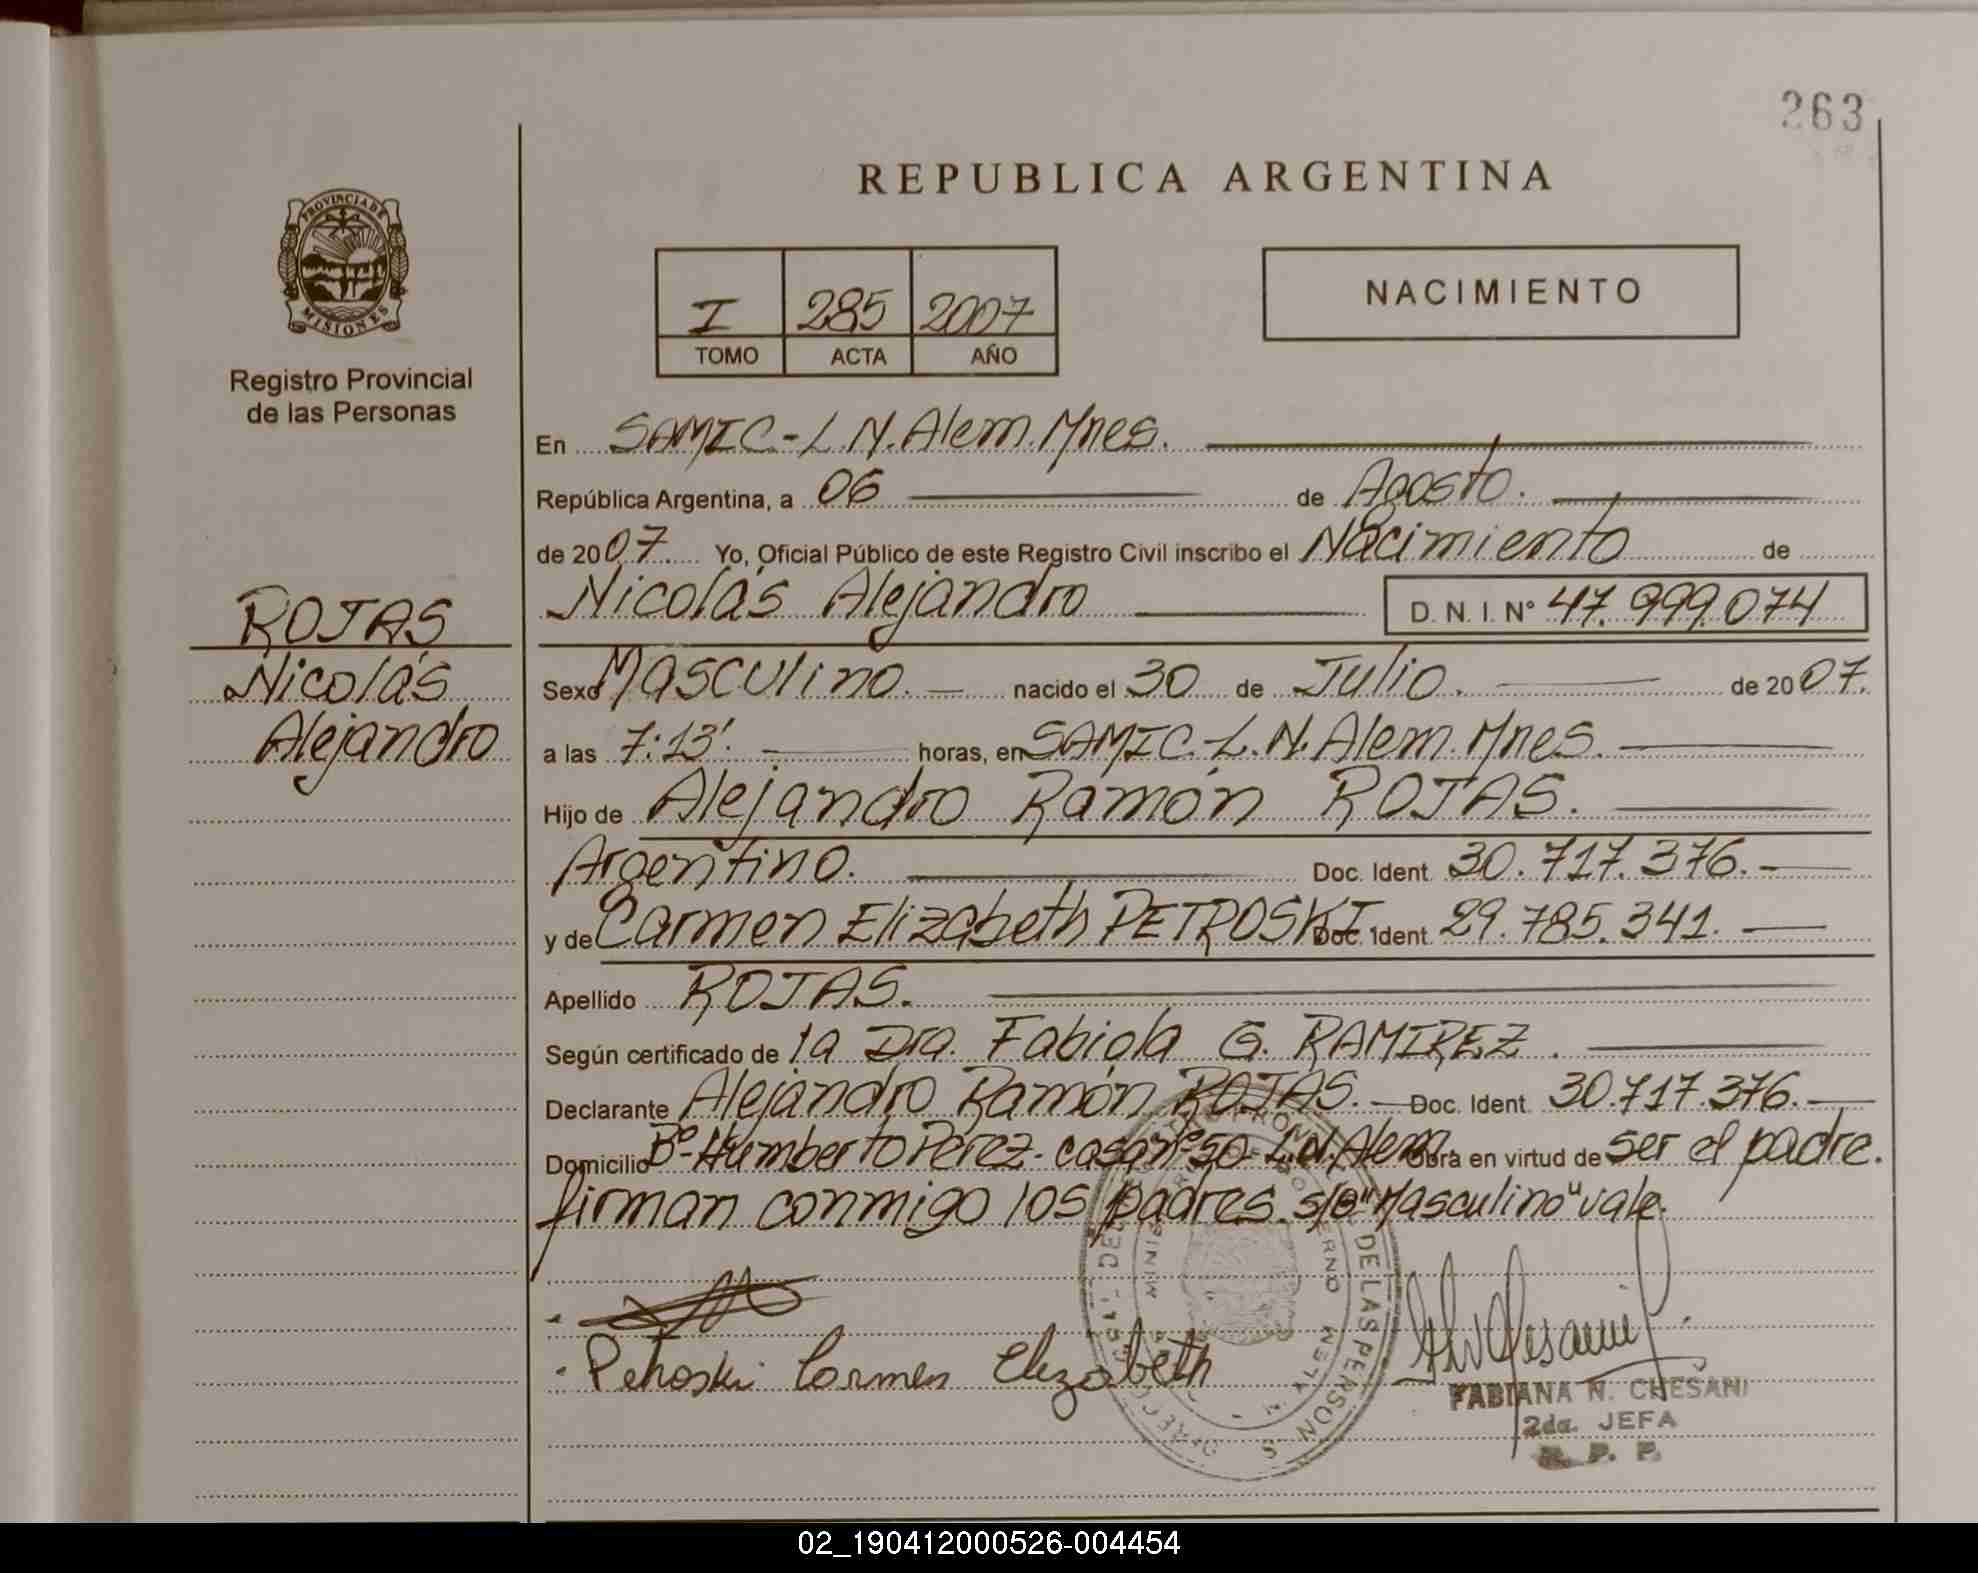 263
REPUBLICA ARGENTINA
PROVINCIA DE
MISIONES
Registro Provincial
de las Personas
I 285 2007
TOMO ACTA AÑO
NACIMIENTO
ROJAS
Nicolás
Alejandro
En SAMIC.-L.N.Alem.Mnes.
República Argentina, a 06 de Agosto.
de 2007. Yo, Oficial Público de este Registro Civil inscribo el Nacimiento de
Nicolás Alejandro D. N. I. N° 47.999.074
Sexo Masculino. nacido el 30 de Julio. de 2007.
a las 7:13'. horas, en SAMIC.-L.N.Alem.Mnes.
Hijo de Alejandro Ramón ROJAS.
Argentino. Doc. Ident. 30.717.376.-
y de Carmen Elizabeth PETROSKI Doc. Ident. 29.785.341.
Apellido ROJAS.
Según certificado de la Dra. Fabiola G. RAMIREZ.
Declarante Alejandro Ramón ROJAS.- Doc. Ident. 30.717.376.-
Domicilio B°-Humberto Perez-casa n°50-L.N.Alem. Obra en virtud de ser el padre.
firman conmigo los padres. s/b "Masculino" vale.
Petroski Carmen Elizabeth
DE LAS PERSONAS
FABIANA N. CHESANI
2da. JEFA
R. P. P.
02_190412000526-004454